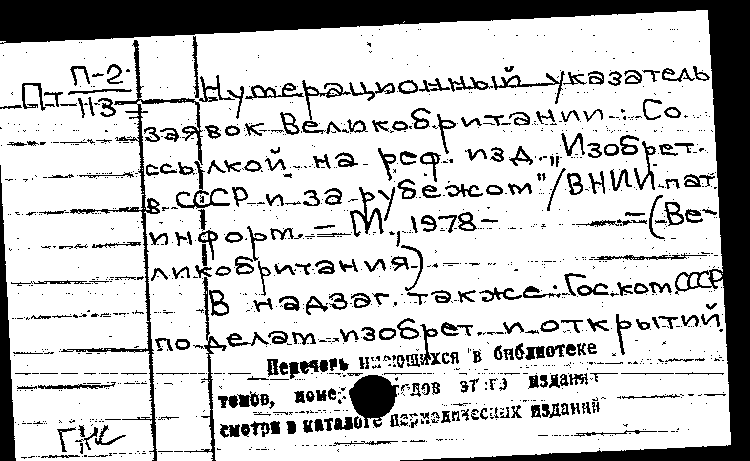 Пт П-2
113
Нумерационный указатель
заявок Великобритании: Со
ссылкой на реф. изд. „Изобрет.
в СССР и за рубежом" / ВНИИ пат.
информ. – М., 1978 – = (Ве-
ликобритания)
В надзаг. также: Гос. ком. СССР
по делам изобрет. и открытий
Перечень имеющихся в библиотеке
томов, номе годов этого издания
смотри в каталоге периодических изданий